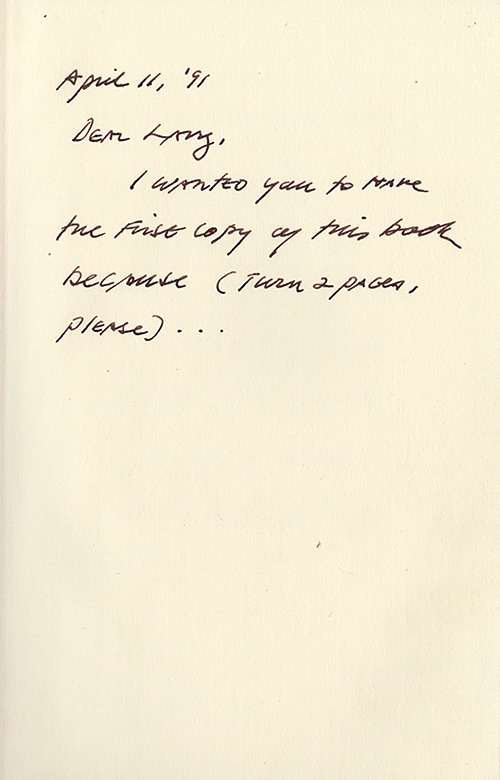 April 11, '91
Dear Larry,
I wanted you to have
the first copy of this book
because (turn 2 pages,
please) . . .